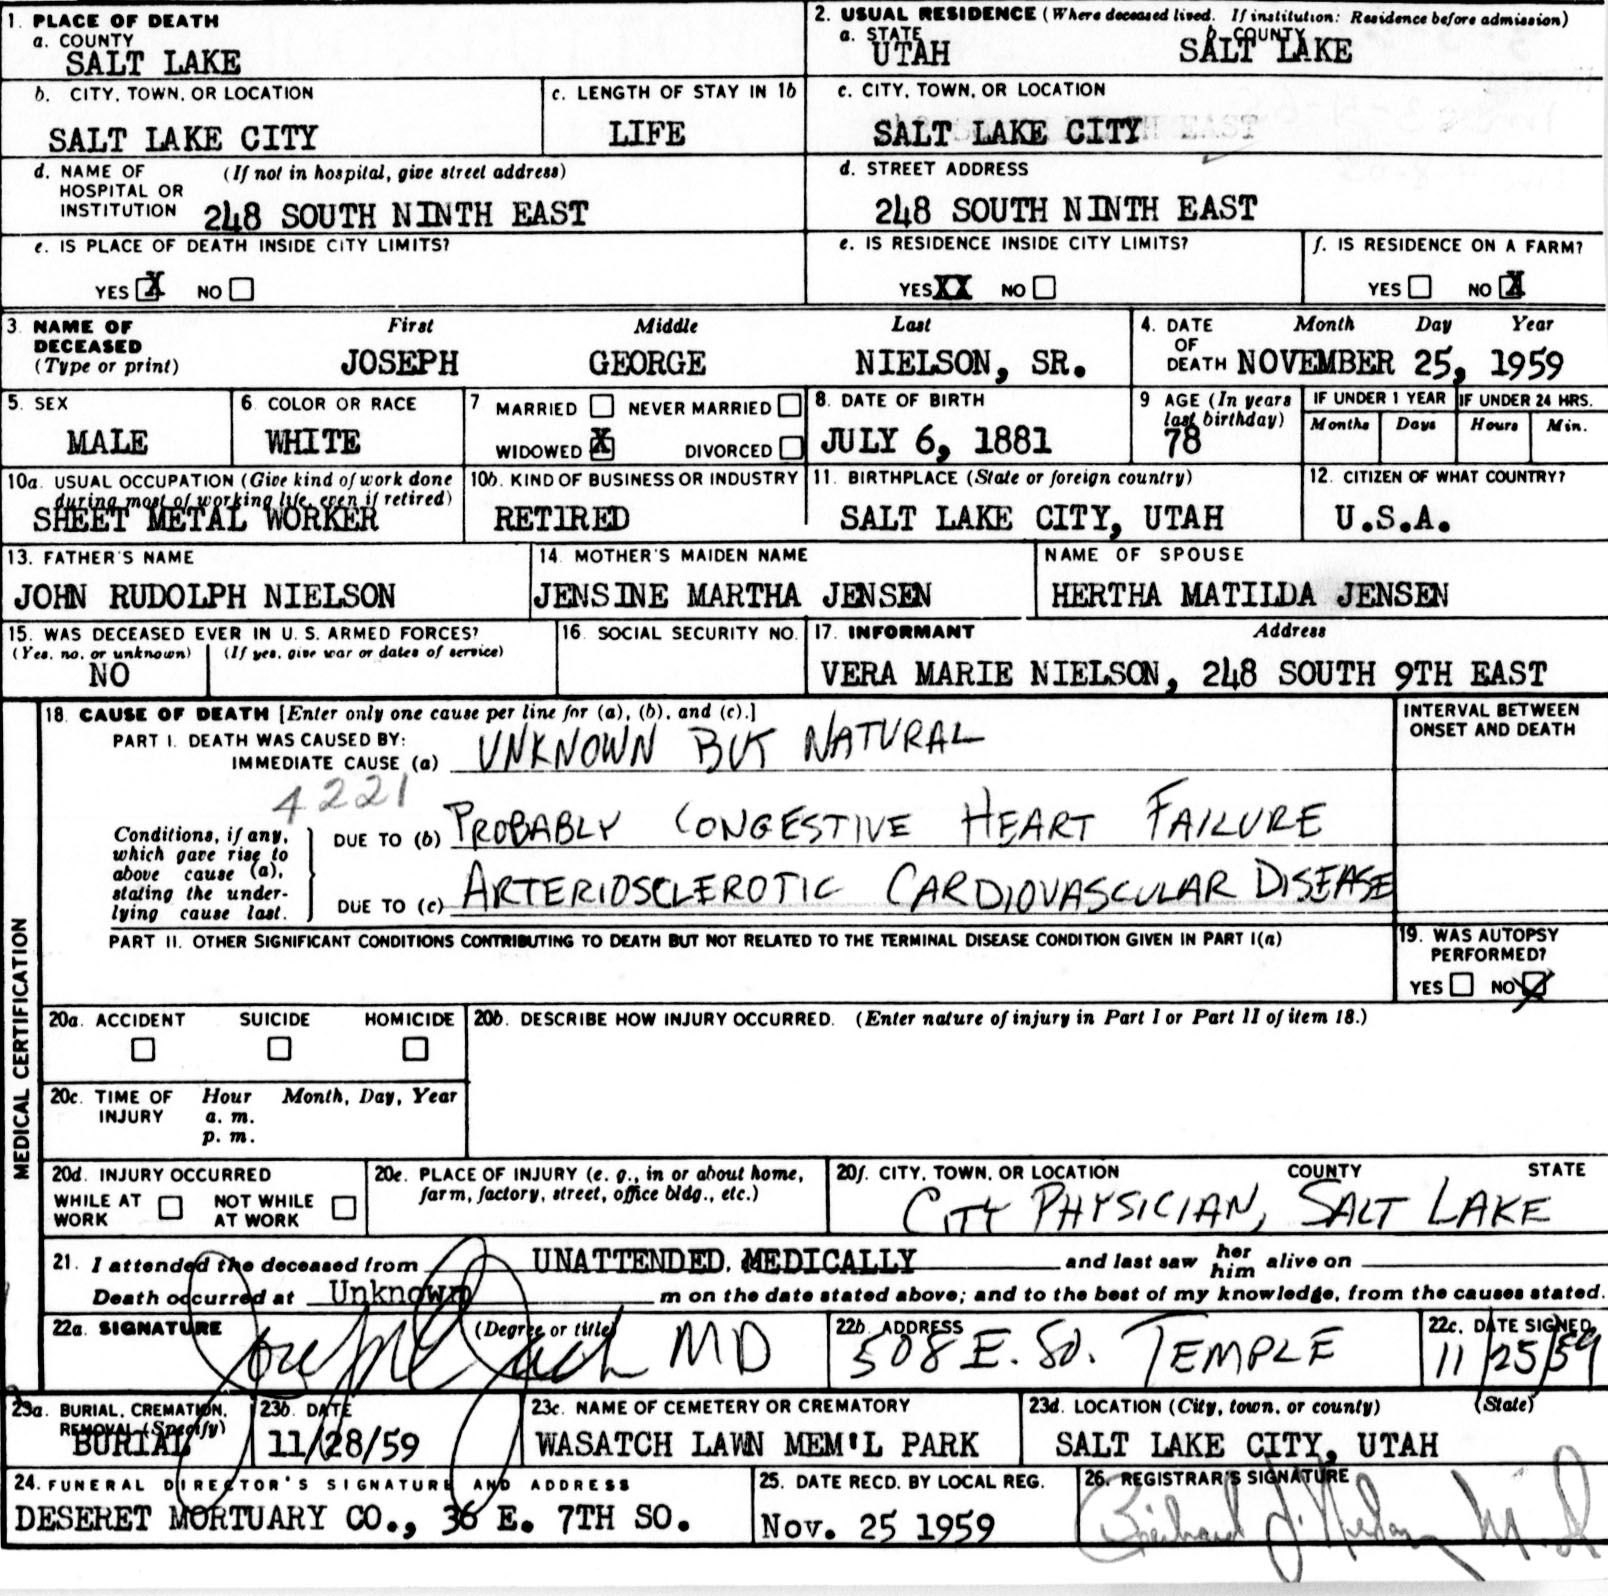 1. PLACE OF DEATH
a. COUNTY
SALT LAKE
2. USUAL RESIDENCE (Where deceased lived. If institution: Residence before admission)
a. STATE b. COUNTY
UTAH SALT LAKE
b. CITY, TOWN, OR LOCATION
SALT LAKE CITY
c. LENGTH OF STAY IN 1b
LIFE
c. CITY, TOWN, OR LOCATION
SALT LAKE CITY
d. NAME OF (If not in hospital, give street address)
HOSPITAL OR
INSTITUTION 248 SOUTH NINTH EAST
d. STREET ADDRESS
248 SOUTH NINTH EAST
e. IS PLACE OF DEATH INSIDE CITY LIMITS?
YES X NO
e. IS RESIDENCE INSIDE CITY LIMITS?
YES XX NO
f. IS RESIDENCE ON A FARM?
YES NO X
3. NAME OF DECEASED (Type or print)
First Middle Last
JOSEPH GEORGE NIELSON, SR.
4. DATE OF DEATH
Month Day Year
NOVEMBER 25, 1959
5. SEX
MALE
6. COLOR OR RACE
WHITE
7 MARRIED NEVER MARRIED
WIDOWED X DIVORCED
8. DATE OF BIRTH
JULY 6, 1881
9 AGE (In years
last birthday)
78
IF UNDER 1 YEAR
Months Days
IF UNDER 24 HRS.
Hours Min.
10a. USUAL OCCUPATION (Give kind of work done
during most of working life, even if retired)
SHEET METAL WORKER
10b. KIND OF BUSINESS OR INDUSTRY
RETIRED
11. BIRTHPLACE (State or foreign country)
SALT LAKE CITY, UTAH
12. CITIZEN OF WHAT COUNTRY?
U.S.A.
13. FATHER'S NAME
JOHN RUDOLPH NIELSON
14. MOTHER'S MAIDEN NAME
JENSINE MARTHA JENSEN
NAME OF SPOUSE
HERTHA MATILDA JENSEN
15. WAS DECEASED EVER IN U. S. ARMED FORCES?
(Yes, no, or unknown) (If yes, give war or dates of service)
NO
16. SOCIAL SECURITY NO.
17. INFORMANT Address
VERA MARIE NIELSON, 248 SOUTH 9TH EAST
MEDICAL CERTIFICATION
18. CAUSE OF DEATH [Enter only one cause per line for (a), (b), and (c).]
INTERVAL BETWEEN
ONSET AND DEATH
PART I. DEATH WAS CAUSED BY:
IMMEDIATE CAUSE (a) UNKNOWN BUT NATURAL
4221
Conditions, if any,
which gave rise to
above cause (a),
stating the under-
lying cause last.
DUE TO (b) PROBABLY CONGESTIVE HEART FAILURE
DUE TO (c) ARTERIOSCLEROTIC CARDIOVASCULAR DISEASE
PART II. OTHER SIGNIFICANT CONDITIONS CONTRIBUTING TO DEATH BUT NOT RELATED TO THE TERMINAL DISEASE CONDITION GIVEN IN PART I(a)
19. WAS AUTOPSY
PERFORMED?
YES NO X
20a. ACCIDENT SUICIDE HOMICIDE
20b. DESCRIBE HOW INJURY OCCURRED. (Enter nature of injury in Part I or Part II of item 18.)
20c. TIME OF INJURY
Hour Month, Day, Year
a. m.
p. m.
20d. INJURY OCCURRED
WHILE AT WORK NOT WHILE AT WORK
20e. PLACE OF INJURY (e. g., in or about home,
farm, factory, street, office bldg., etc.)
20f. CITY, TOWN, OR LOCATION COUNTY STATE
CITY PHYSICIAN, SALT LAKE
21. I attended the deceased from UNATTENDED, MEDICALLY and last saw her him alive on
Death occurred at Unknown m on the date stated above; and to the best of my knowledge, from the causes stated.
22a. SIGNATURE (Degree or title)
MD
22b. ADDRESS
508 E. So. TEMPLE
22c. DATE SIGNED
11/25/59
23a. BURIAL, CREMATION,
REMOVAL (Specify)
BURIAL
23b. DATE
11/28/59
23c. NAME OF CEMETERY OR CREMATORY
WASATCH LAWN MEM'L PARK
23d. LOCATION (City, town, or county) (State)
SALT LAKE CITY, UTAH
24. FUNERAL DIRECTOR'S SIGNATURE AND ADDRESS
DESERET MORTUARY CO., 36 E. 7TH SO.
25. DATE RECD. BY LOCAL REG.
Nov. 25 1959
26. REGISTRAR'S SIGNATURE